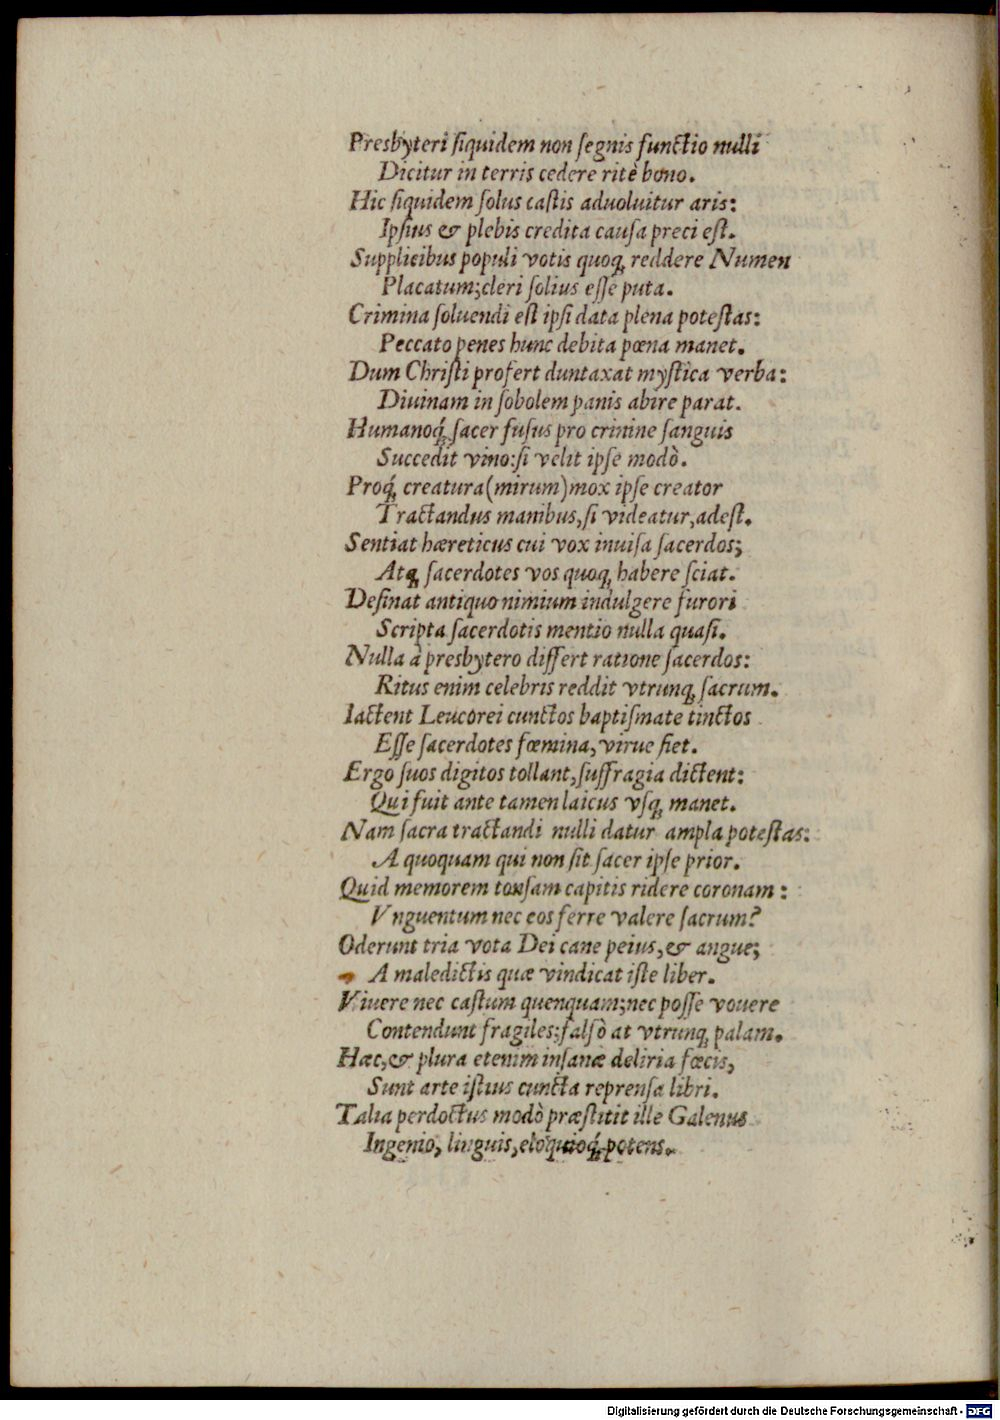 Presbyteri ſiquidem non ſegnis functio nulli
Dicitur in terris cedere ritè bono.
Hic ſiquidem ſolus caſtis aduoluitur aris:
Ipſius & plebis credita cauſa preci eſt.
Supplicibus populi votis quoq; reddere Numen
Placatum; cleri ſolius eſſe puta.
Crimina ſoluendi eſt ipſi data plena poteſtas:
Peccato penes hunc debita pœna manet.
Dum Chriſti profert duntaxat myſtica verba:
Diuinam in ſobolem panis abire parat.
Humanoq́; ſacer fuſus pro crimine ſanguis
Succedit vino: ſi velit ipſe modò.
Proq́; creatura (mirum) mox ipſe creator
Tractandus manibus, ſi videatur, adeſt.
Sentiat hæreticus cui vox inuiſa ſacerdos;
Atq; ſacerdotes vos quoq; habere ſciat.
Deſinat antiquo nimium indulgere furori
Scripta ſacerdotis mentio nulla quaſi.
Nulla à presbytero differt ratione ſacerdos:
Ritus enim celebris reddit vtrunq; ſacrum.
Iactent Leucorei cunctos baptiſmate tinctos
Eſſe ſacerdotes fœmina, virue fiet.
Ergo ſuos digitos tollant, ſuffragia dictent:
Qui fuit ante tamen laicus vſq; manet.
Nam ſacra tractandi nulli datur ampla poteſtas:
A quoquam qui non ſit ſacer ipſe prior.
Quid memorem tonſam capitis ridere coronam:
Vnguentum nec eos ferre valere ſacrum?
Oderunt tria vota Dei cane peius, & angue;
A maledictis quæ vindicat iſte liber.
Viuere nec caſtum quenquam; nec poſſe vouere
Contendunt fragiles; falſò at vtrunq; palam.
Hæc, & plura etenim inſanæ deliria fœcis,
Sunt arte iſtius cuncta reprenſa libri.
Talia perdoctus modò præſtitit ille Galenus
Ingenio, linguis, eloquioq́; potens.
Digitalisierung gefördert durch die Deutsche Forschungsgemeinschaft - DFG